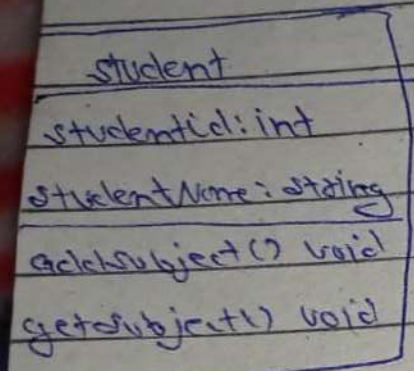 student
studentid: int
studentName: string
addsubject() void
getsubject() void